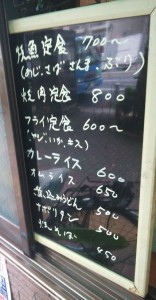 焼魚定食 700〜
(あじ,さば,さんま,ぶり)
焼肉定食 800
フライ定食 600〜
カレーライス 600
オムライス 650
煮込みうどん 500
ナポリタン 500
焼そば 450